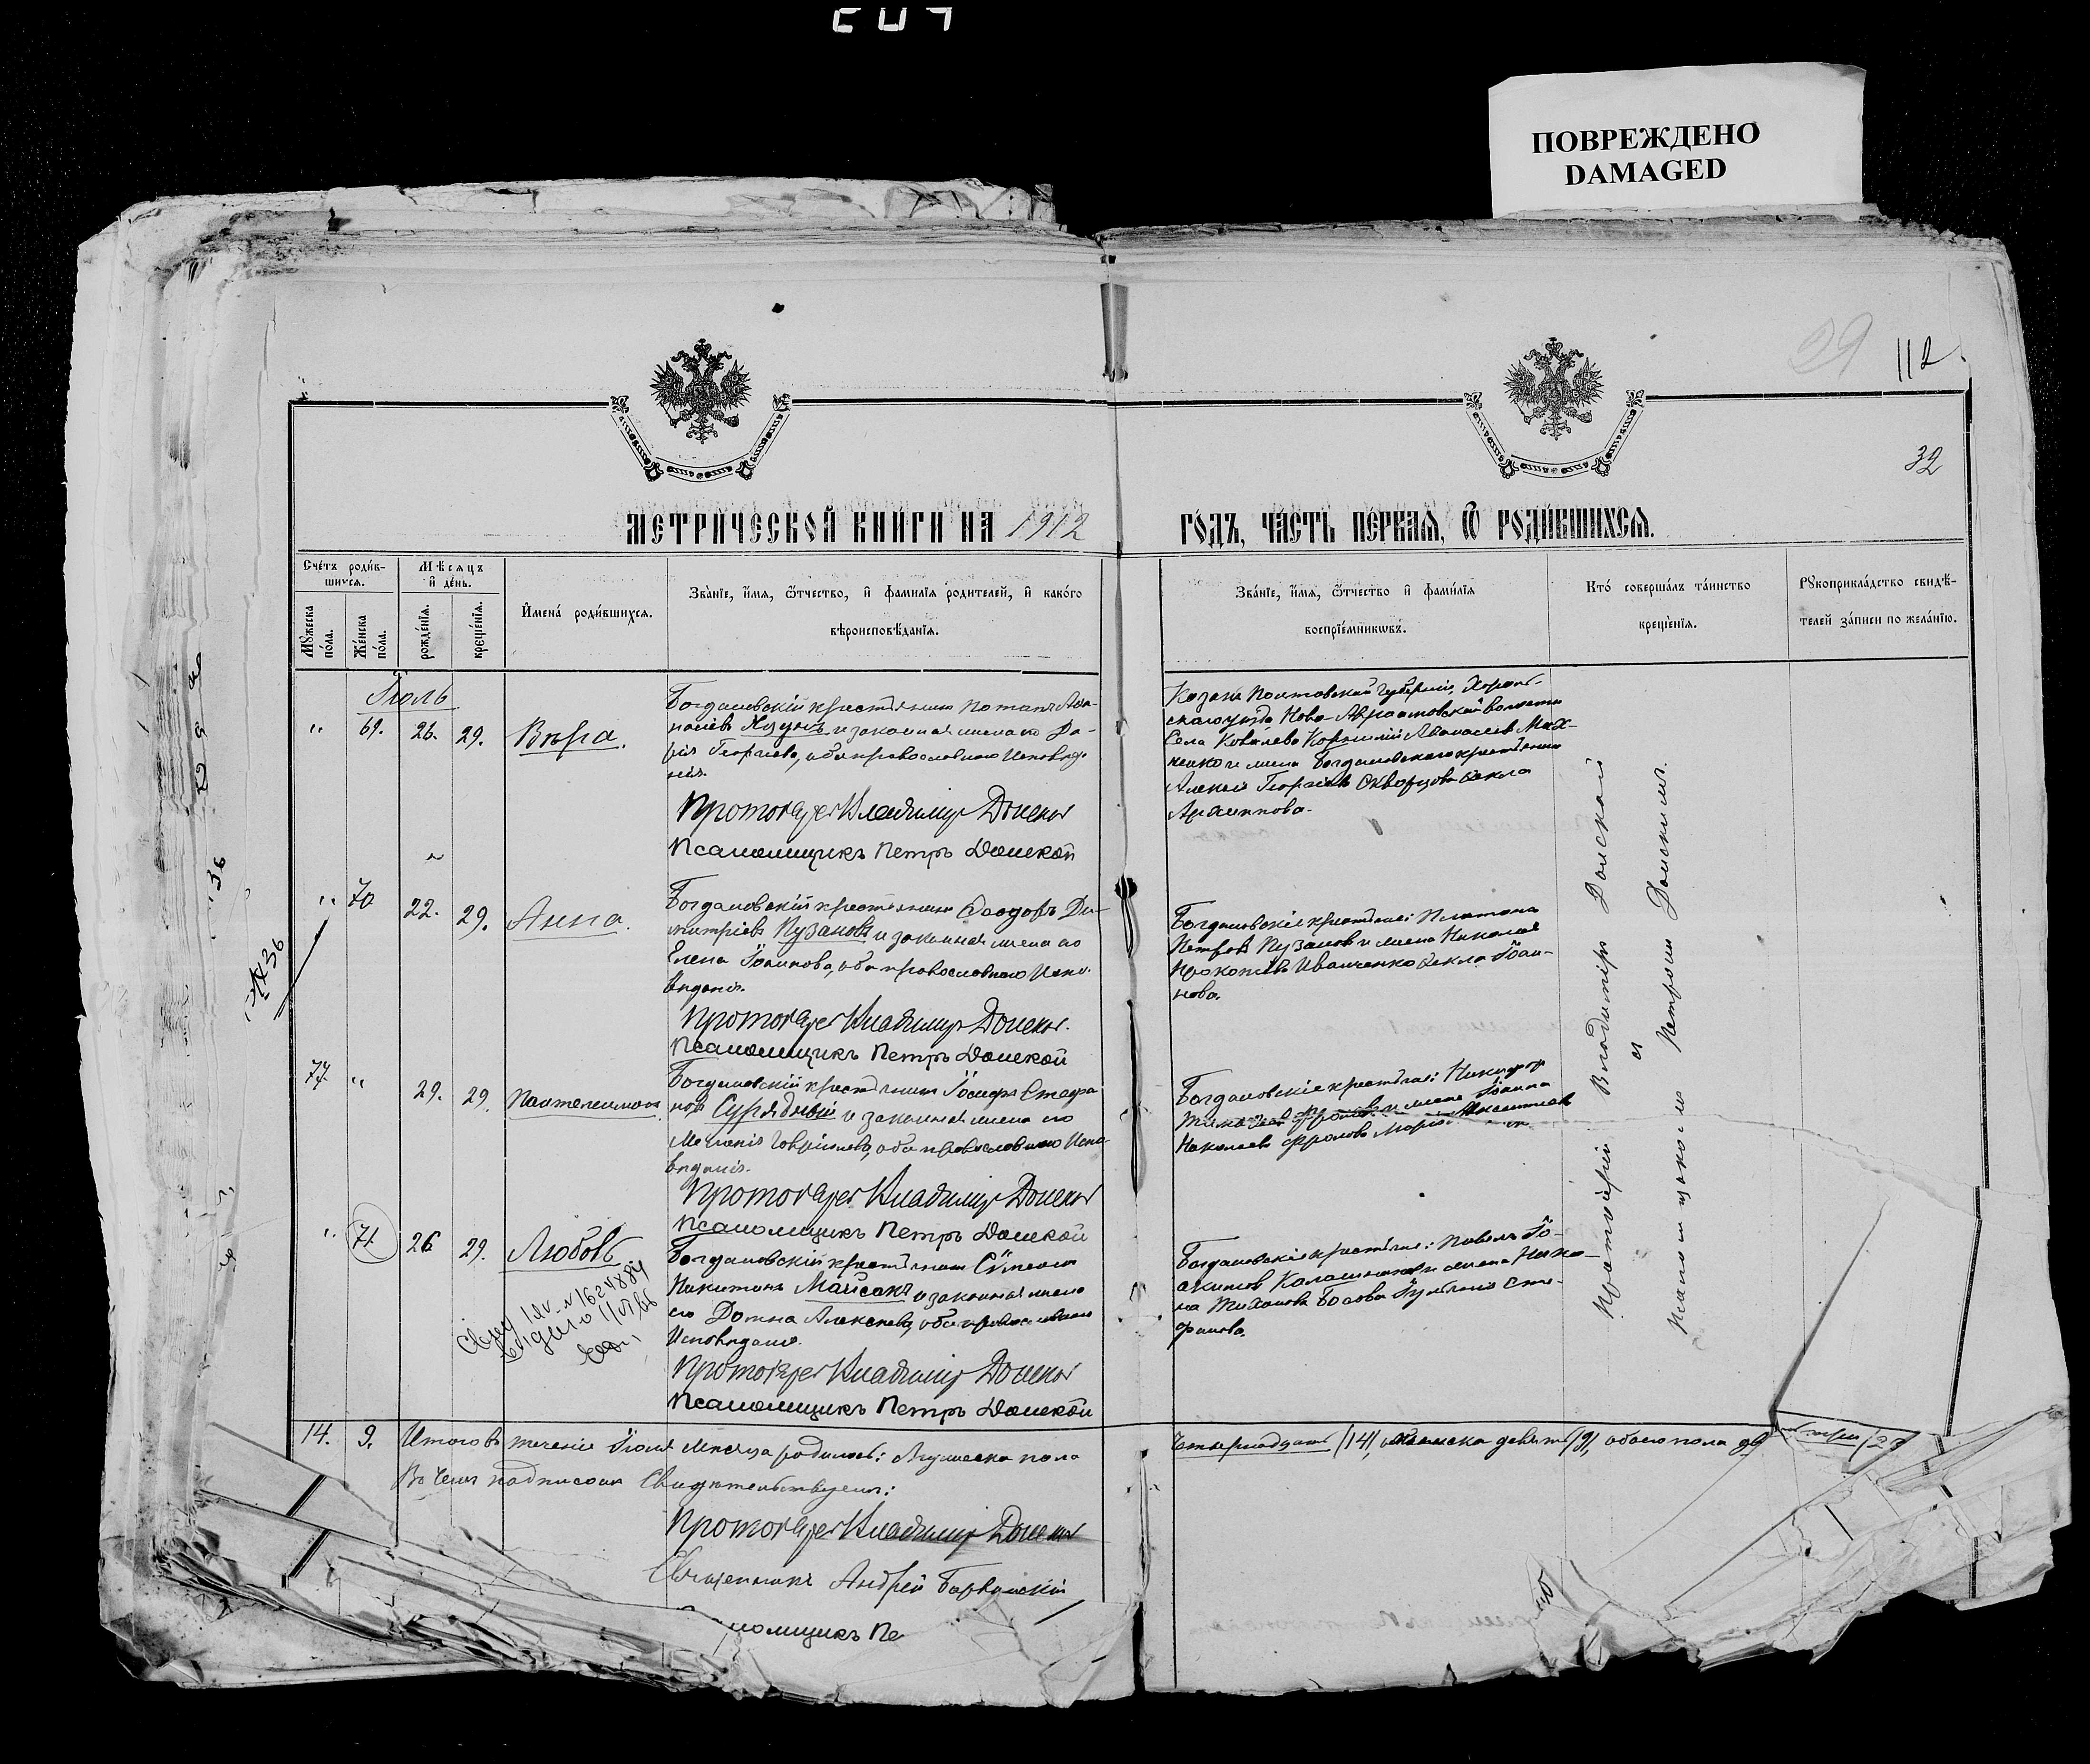 ПОВРЕЖДЕНО
DAMAGED
29
112
32
МЕТРИЧЕСКОЙ КНИГИ НА 1912
ГОДЪ, ЧАСТЬ ПЕРВАЯ, Ѿ РОДИВШИХСЯ.
Счетъ родив-
шихся.
Мѣсяцъ
и день.
Мужеска
пола.
Женска
пола.
рожденія.
крещенія.
Имена родившихся.
Званіе, имя, ѿчество, и фамилія родителей, и какого
вѣроисповѣданія.
Званіе, имя, ѿчество и фамилія
воспріемниковъ.
Кто совершалъ таинство
крещенія.
Рукоприкладство свидѣ-
телей записи по желанію.
Іюль
" 69. 26. 29. Вѣра.
Богдановскій крестьянинъ Потапъ
и законная жена его Да-
рія Георгіева, оба православного исповѣда-
нія.
Протоіерей Владиміръ Донской
Псаломщикъ Петръ Донской
Козакъ Полтавской губерніи, Хороль-
скаго уѣзда Ново-Аврамовской волости
Села Ковалева Корнилій Аѳанасіевъ
и жена Богдановского крестьянина
Алексія Георгіева Скворцова Ѳекла
Архиппова.
" 70 22. 29. Анна.
Богдановскій крестьянинъ Ѳеодоръ Ди-
митріевъ Пузановъ и законная жена его
Елена Іоаннова, оба православного испо-
вѣданія.
Протоіерей Владиміръ Донской.
Псаломщикъ Петръ Донской
Богдановскіе крестьяне: Платонъ
Петровъ Пузановъ и жена Николая
Прокопіева Иванченко Ѳекла Іоан-
нова.
77. " 29. 29. Пантелеимонъ
Богдановскій крестьянинъ Іосифъ Стефа-
новъ Сурядный и законная жена его
Меланія Гавріилова, оба православного испо-
вѣданія.
Протоіерей Владиміръ Донской
Псаломщикъ Петръ Донской
Богдановскіе крестьяне: Никифоръ
и жена Іоанна
Николаева Фролова Марія
" 71 26 29. Любовь
Богдановскій крестьянинъ Сѵмеонъ
Никитинъ Майсакъ и законная жена
его Домна Алексѣева, оба православного
исповѣданія.
Протоіерей Владиміръ Донской
Псаломщикъ Петръ Донской
Богдановскіе крестьяне: Павелъ Іо-
акимовъ Калашниковъ и жена Нико-
на Тихонова Босова Іуліанія Сте-
фанова.
Протоіерей Владиміръ Донской
и
Псаломщикомъ Петромъ Донскимъ.
14. 9. Итого въ теченіе Іюля мѣсяца родилось: мужеска пола
четырнадцать /14/, женска девять /9/, обоего пола
три /23
Въ чемъ подписомъ свидѣтельствуемъ:
Протоіерей Владиміръ Донской
Священникъ Андрей
ломщикъ Пе